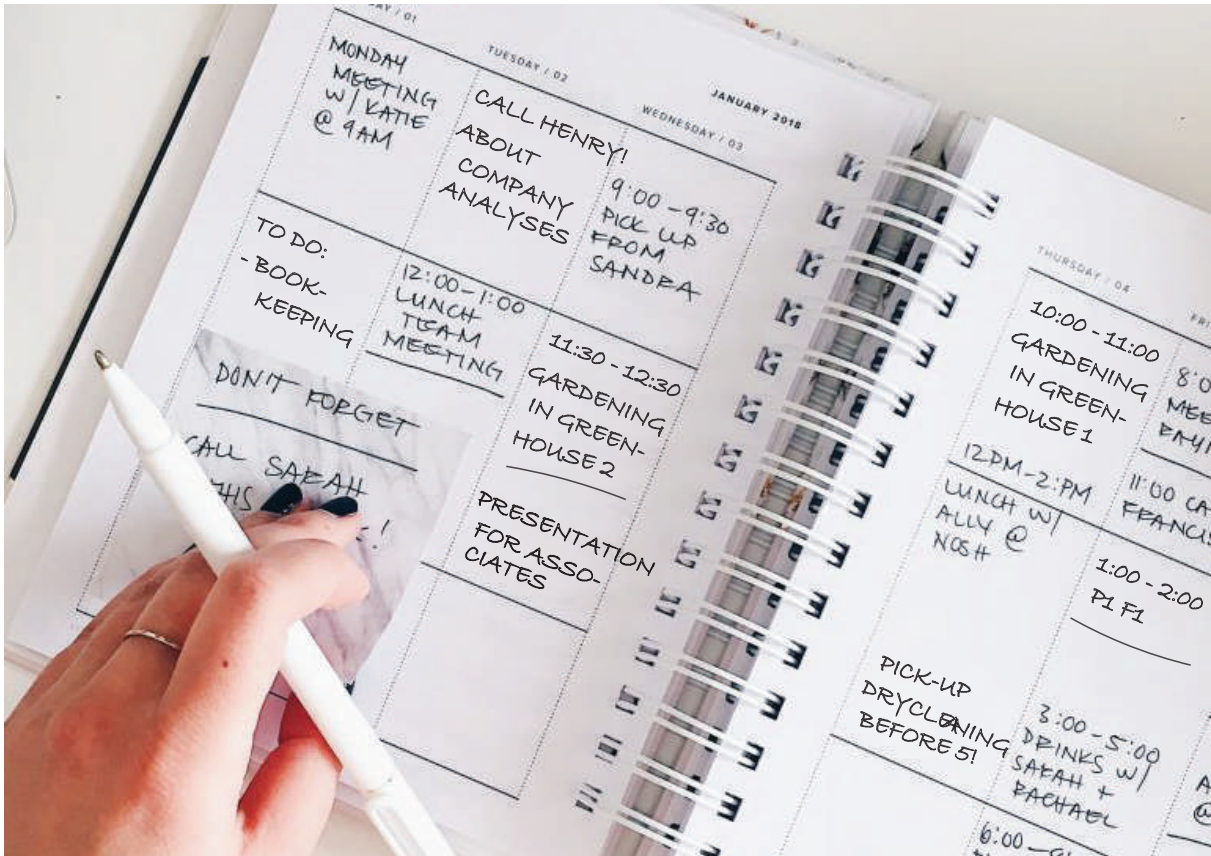 AY / 01
MONDAY
MEETING
W/ KATIE
@ 9AM
TO DO:
- BOOK-
KEEPING
DON'T FORGET
CALL SARAH
THIS
!
TUESDAY / 02
CALL HENRY!
ABOUT
COMPANY
ANALYSES
12:00-1:00
LUNCH
TEAM
MEETING
JANUARY 2018
WEDNESDAY / 03
9:00-9:30
PICK UP
FROM
SANDRA
11:30-12:30
GARDENING
IN GREEN-
HOUSE 2
PRESENTATION
FOR ASSO-
CIATES
THURSDAY / 04
10:00-11:00
GARDENING
IN GREEN-
HOUSE 1
12PM-2:PM
LUNCH W/
ALLY @
NOSH
PICK-UP
DRYCLEANING
BEFORE 5!
FRI
8:0
MEE
11:00 CA
FRANCIS
1:00-2:00
P1 F1
3:00-5:00
DRINKS W/
SARAH +
RACHAEL
6:00
A
@